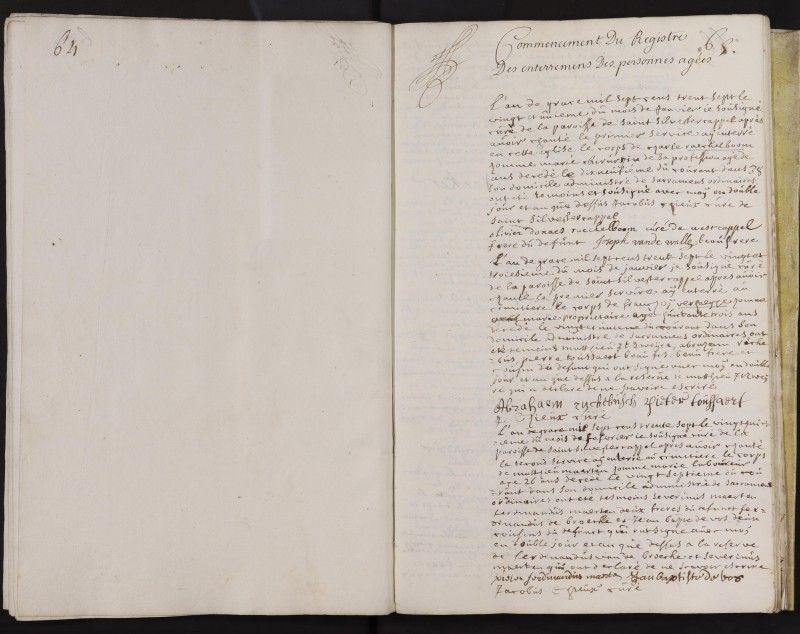 64
65.
Commencement Du Registre
Des enterremens Des personnes agées
L'an de grace mil sept cens trent sept le
vingt et unieme du mois de Janvier ie soûsigné
curé de la paroisse de saint Silvestercappel après
avoir chanté le premier service aÿ enterré
en cette église le corps de charle raechelboom
homme marié chirurgien de sa profession agé de
ans decedé le dixneufième du courant dans 38
son domicile administré de sacramens ordinaires
ont été temoins et soûsigné avec moÿ en double
jour et an que dessus Jacobus curé de
saint Silvestercappel
olivier donaes raechelboom curé de westcappel
frere du defunt Joseph vande walle beaufrere
L'an de grace mil sept cens trent sept le vingt et
troisiesme du mois de janvier je soûsigné curé
de la paroisse de saint Silvestercappel apres avoir
chanté le premier service aÿ enterré au
cimitiere le corps de françois homme
marié proprietaire agé quarante trois ans
decedé le vingt et unieme du courant dans son
domicile administré de sacramens ordinaires ont
été temoins matthieu abraham
pierre toussaert beau fils beau frere et
cousin du defunt qui ont signé avec moÿ en double
jour et an que dessus a la reserve de matthieu
qui a declaré de ne scavoire escrire
Abraham rychebusch pieter toussaert
J. curé
L'an de grace mil sept cens trente sept le vingt
du mois de fevrier ie soûsigné curé de la
paroisse de saint Silvestercappel apres avoir chanté
le second service aÿ enterré au cimetiere le corps
de matthieu maerten homme marié laboureur
agé 26 ans decedé le vingt septieme du
dans son domicile administré de sacramens
ordinaires ont été tesmoins severinus maerten
ferdinandus maerten deux freres du defunct
de broecke et Jean baptiste de vos deux
cousins du defunct qui ont signé avec moÿ
en double jour et an que dessus a la reserve
de ferdinandus vande broecke et severinus
maerten qui ont declaré de ne scavoir escrire
ferdinandus maerten Jan baptiste de vos
Jacobus curé